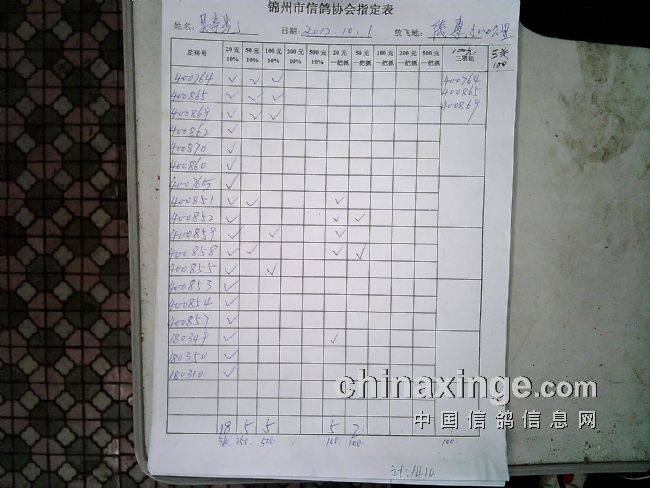 锦州市信鸽协会指定表
姓名: 日期: 2012.10.1 放飞地: 500公里
足环号 20元10% 50元10% 100元10% 200元10% 500元10% 20元一把抓 50元一把抓 100元一把抓 200元一把抓 500元一把抓 100元三羽组 三关100
400764 ✓ ✓ ✓ 400764
400865 ✓ ✓ ✓ 400865
400869 ✓ ✓ ✓ 400869
400862 ✓
400870 ✓
400860 ✓
400765 ✓
400851 ✓ ✓ ✓
400852 ✓ ✓ ✓
400859 ✓ ✓ ✓
400858 ✓ ✓ ✓ ✓
400855 ✓ ✓
400853 ✓
400854 ✓
400857 ✓
180349 ✓ ✓
180350 ✓
180310 ✓
chinaxinge.com
中国信鸽信息网
18 5 5 5 2
360 250 500 100 100 100
计:1410